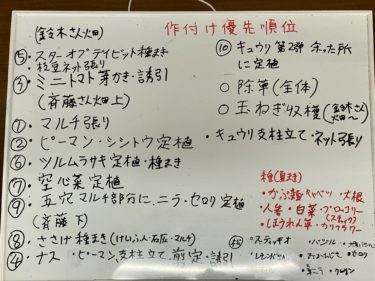 作付け優先順位
(鈴木さん畑)
⑤・スターオブデイビット種まき
・枝豆ネット張り
・ミニトマト芽かき・誘引
(斉藤さん畑上)
①・マルチ張り
②・ピーマン・シシトウ定植
⑥・ツルムラサキ定植・種まき
⑦・空心菜定植
⑨・五穴マルチ部分に、ニラ・セロリ定植
(斉藤 下)
⑧・ささげ種まき(けいふん・石灰・マルチ)
④・ナス・ピーマン、支柱立て、剪定・誘引
⑩・キュウリ第2弾 余った所に定植
○ 除草(全体)
○ 玉ねぎ収穫(鈴木さん畑〜)
・キュウリ支柱立て・ネット張り
種(夏まき)
・かぶ・キャベツ・大根
・人参・白菜・ブロッコリー
(スティック)
・ほうれん草・カリフラワー
・バジル